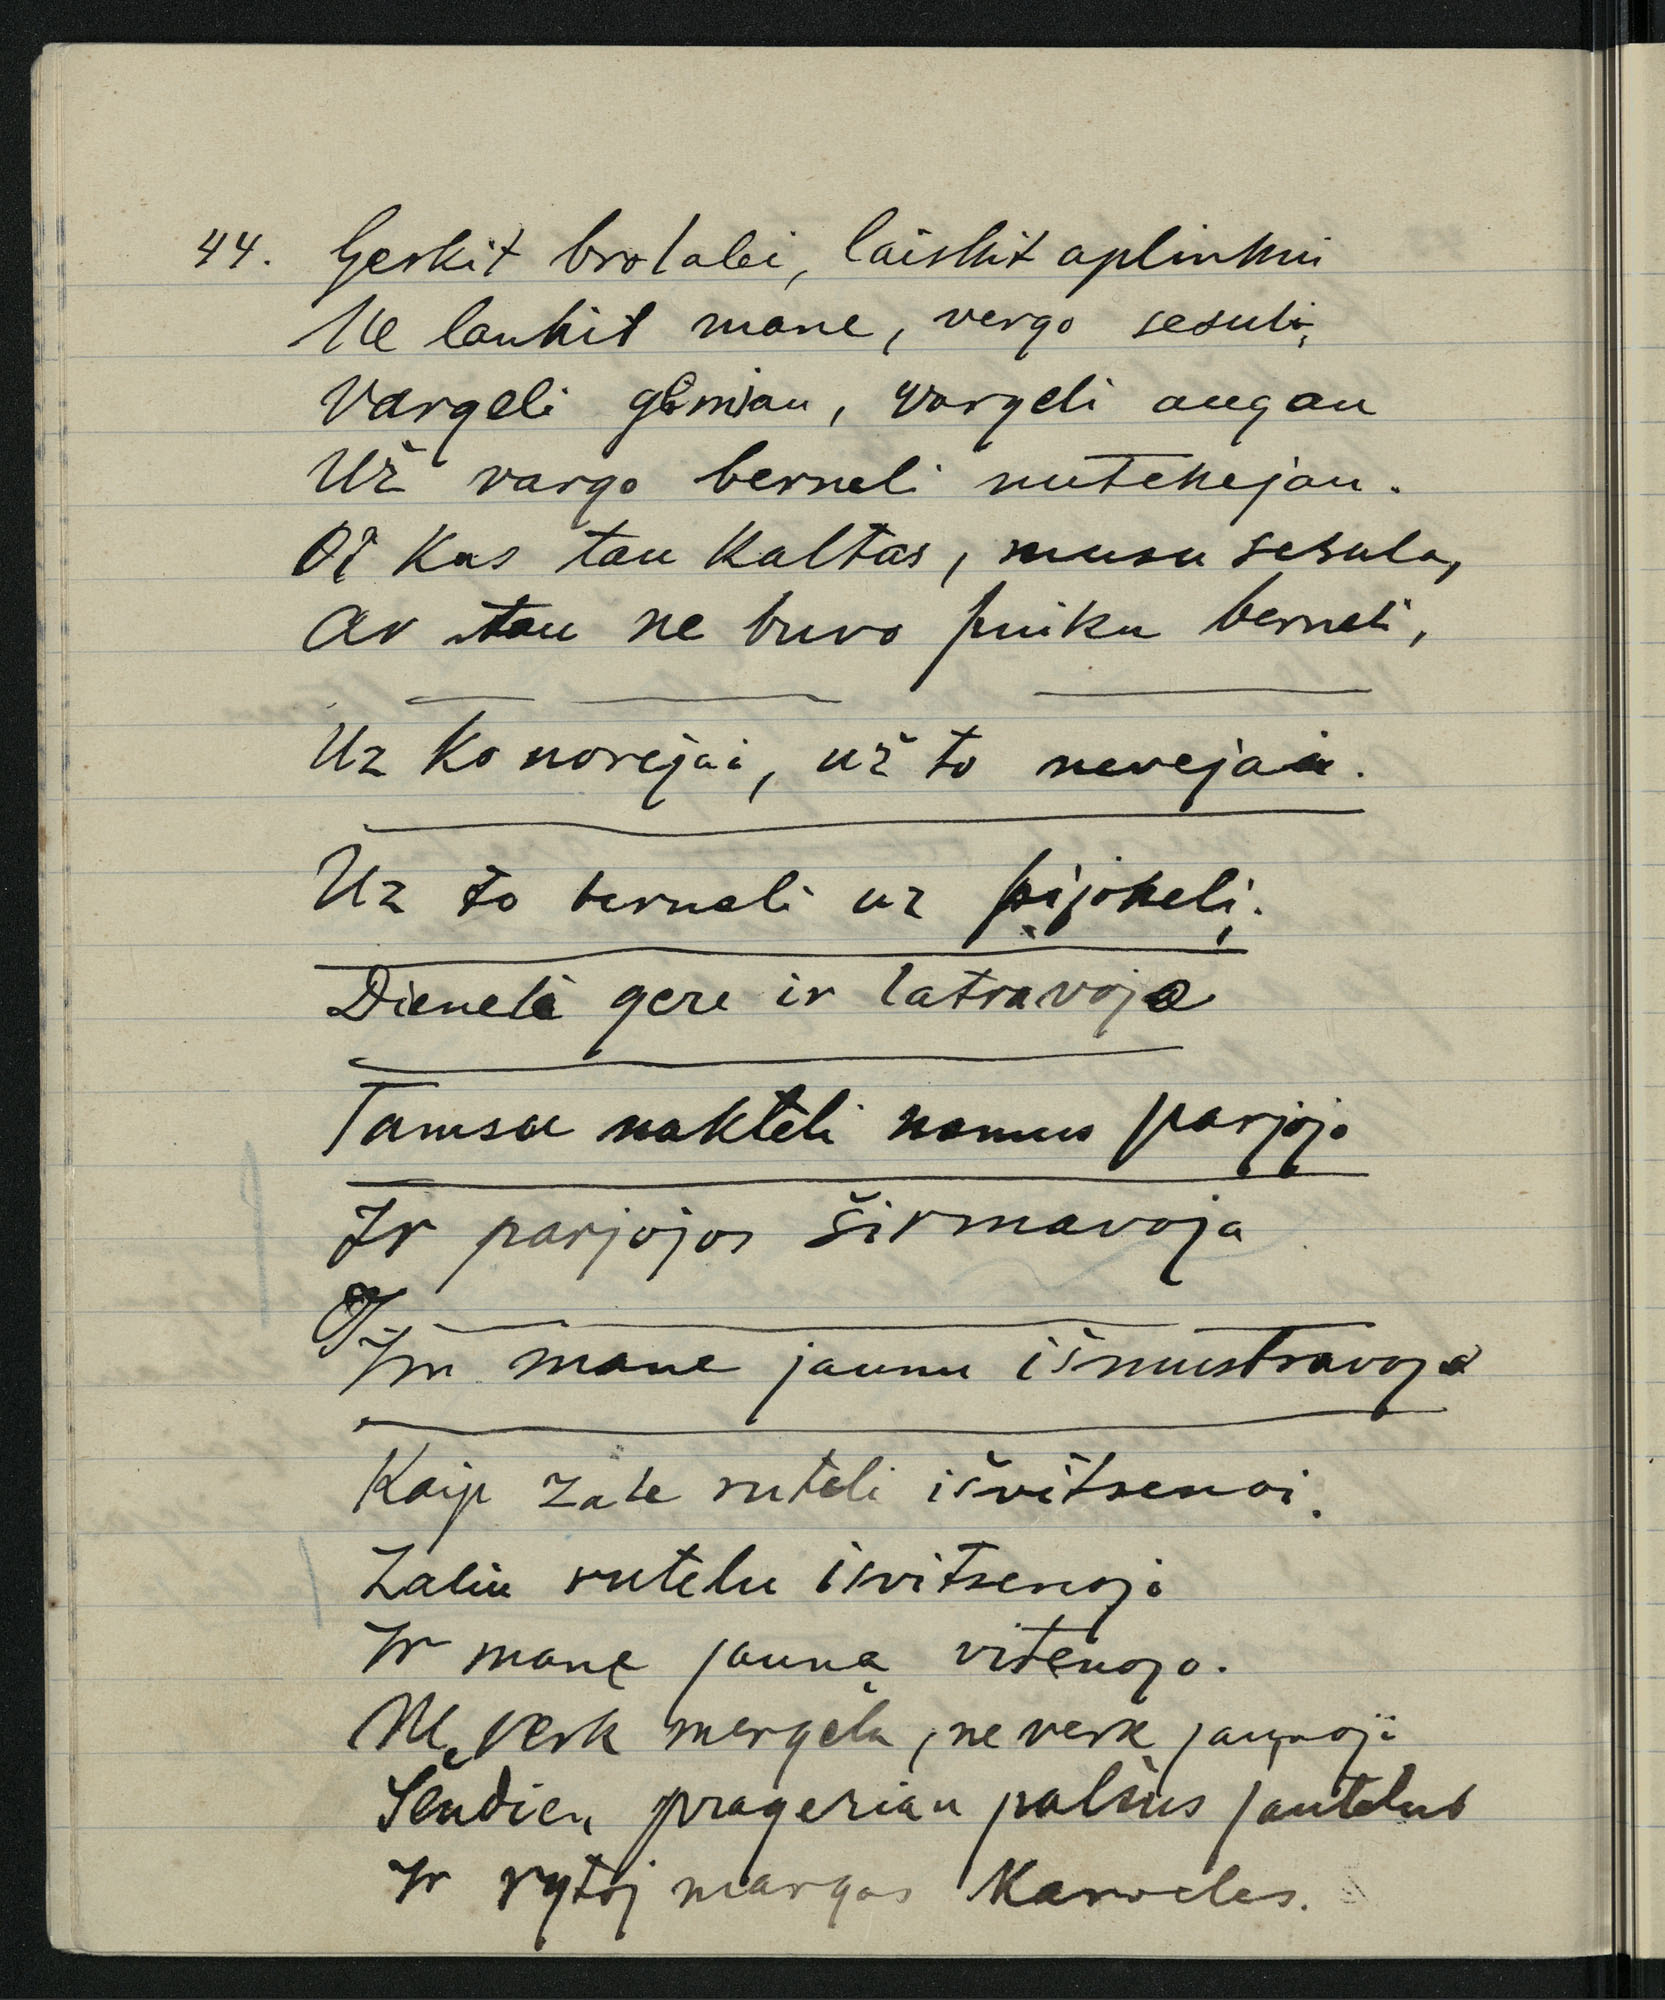 44. Gerkit brolalei, laiskit aplinkui
Ne laukit mane, vergo sesuli,
Vargeli gimiau, vargeli augau
Už vargo berneli nutekejau.
Oi Kas tau Kaltas, musu sesula,
Ar tau ne buvo puiku berneli,
Uz Ko norejai, už to nuvejai.
Uz to berneli uz pijokelį.
Dienelė gere ir latravoja
Tamsu naktėli namus parjojo
Ir parjojos širmavoja
Im mane jaunu išmustravoja
Kaip zale ruteli išvitsenoi.
Zaliu rutelu isvitsenoji
Ir manę jauną vitenojo.
Ne verk mergela, ne verk jaunoji
Šendien pragerian palšus jautelus
Ir rytoj margas Karveles.